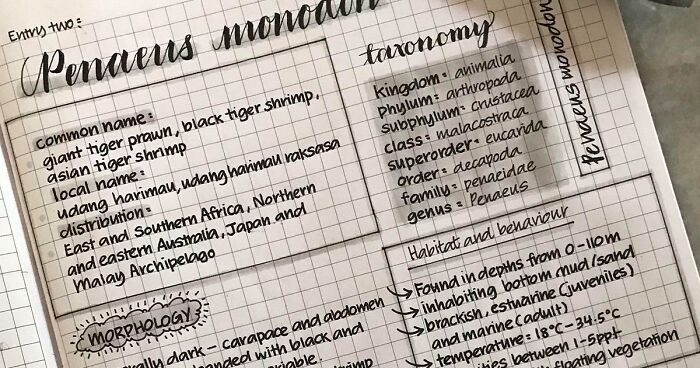 Entry two:
Penaeus monodon
common name:
giant tiger prawn, black tiger shrimp,
asian tiger shrimp
local name:
udang harimau, udang harimau raksasa
distribution:
East and Southern Africa, Northern
and eastern Australia, Japan and
Malay Archipelago
MORPHOLOGY
dark - carapace and abdomen
banded with black and
taxonomy
Kingdom: animalia
Phylum: arthropoda
subphylum: crustacea
class: malacostraca
superorder: eucarida
order: decapoda
family: penaeidae
genus: Penaeus
Penaeus monodon
Habitat and behaviour
Found in depths from 0-110m
inhabiting bottom mud/sand
brackish, estuarine (juveniles)
and marine (adult)
temperature: 18°C-34.5°C
between 1-5ppt
floating vegetation